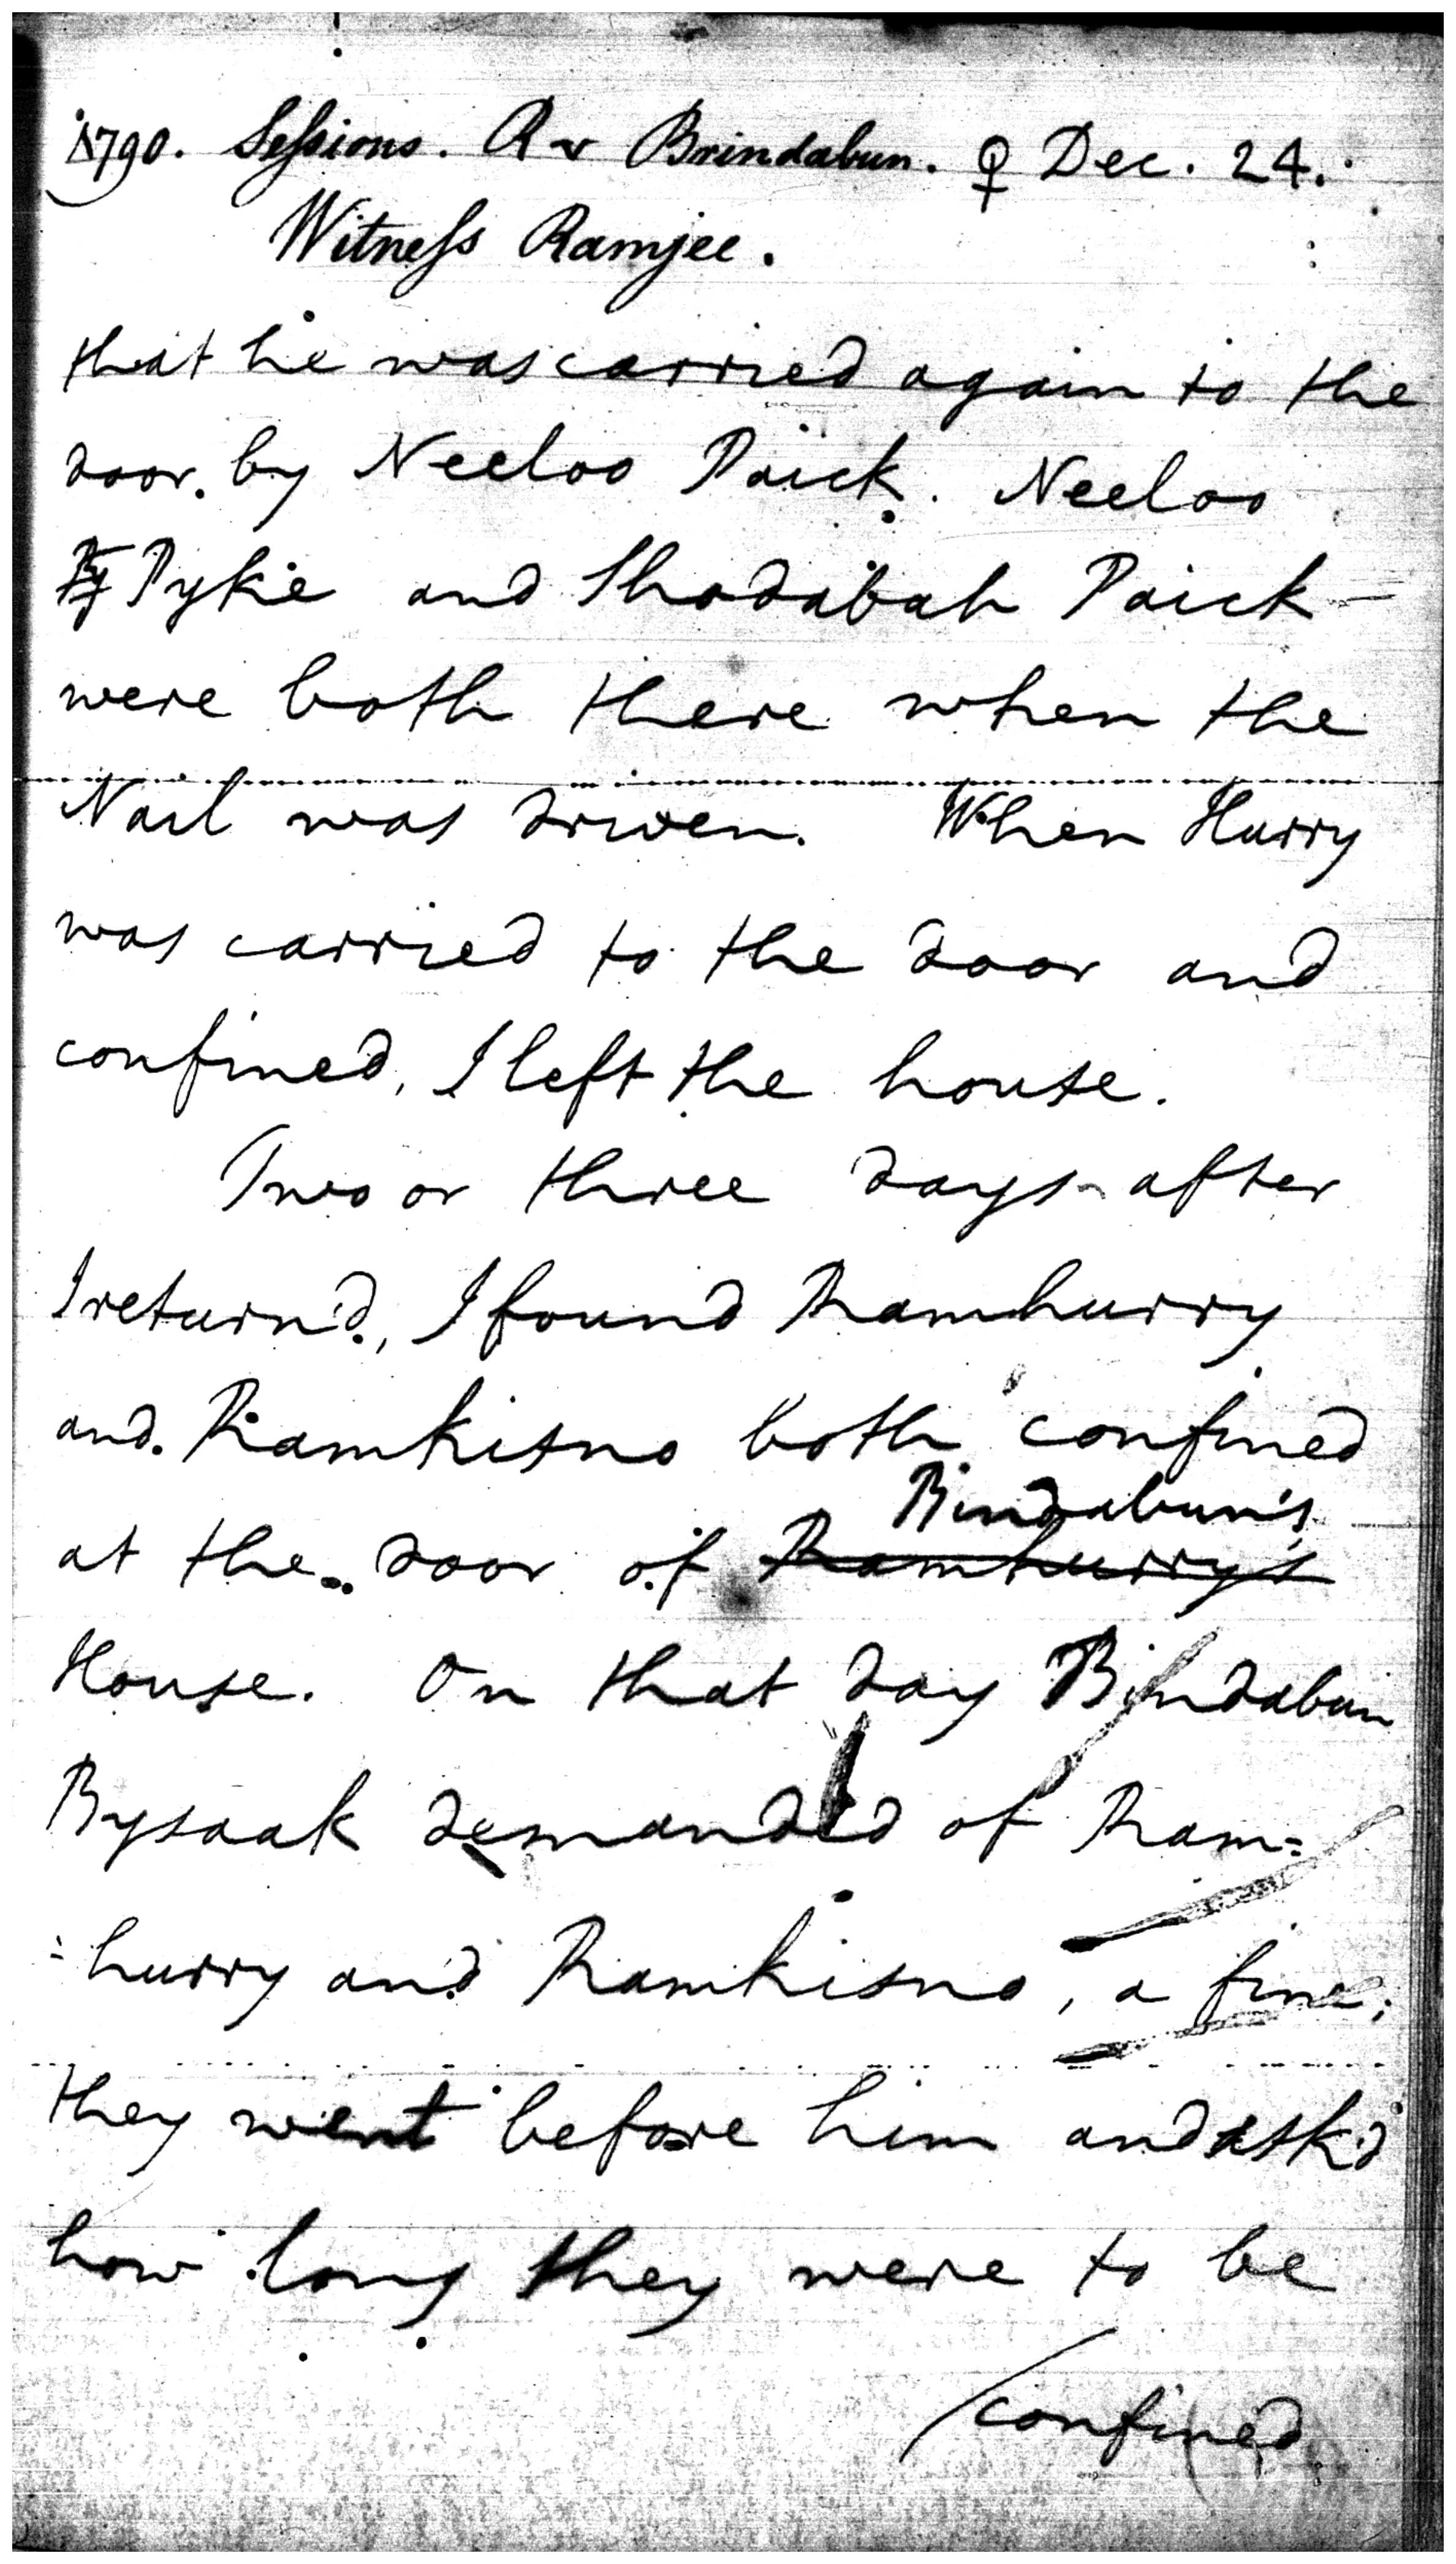 1790. Sessions. R v Brindabun. ♀ Dec. 24.
Witness Ramjee.
that he was carried again to the
door. by Neeloo Paick. Neeloo
Py Pykie and Shodabah Paick
were both there when the
Nail was driven. When Hurry
was carried to the door and
confined, I left the house.
Two or three days after
I return'd, I found Ramhurry
and Ramkisno both confined
Bindabun's
at the door of Ramhurry's
House. On that day Bindabun
Bysaak demanded of Ram=
=hurry and Ramkisno, a fine;
they went before him and ask'd
how long they were to be
confined